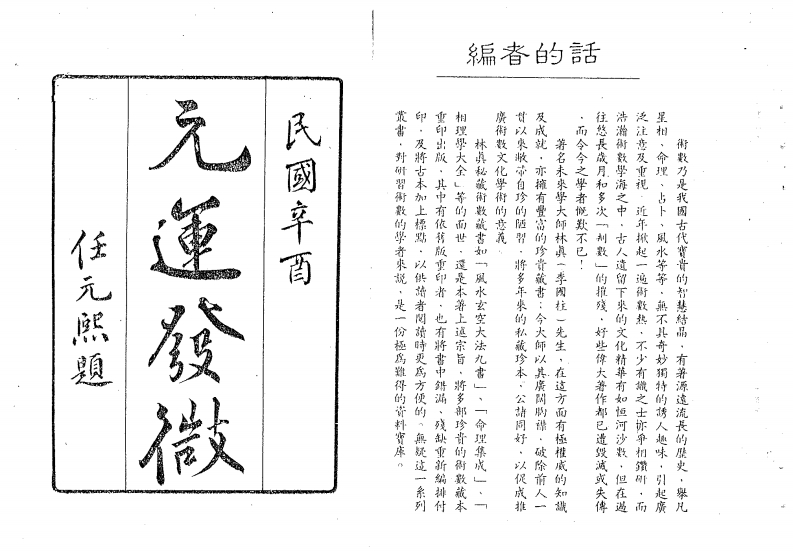 編者的話
術數乃是我國古代寶貴的智慧結晶，有著源遠流長的歷史，舉凡
星相、命理、占卜、風水等等，無不具奇妙獨特的誘人趣味，引起廣
泛注意及重視。近年掀起一遍術數熱，不少有識之士亦爭相鑽研，而
浩瀚術數學海之中，古人遺留下來的文化精華有如恒河沙數，但在過
往悠長歲月和多次「刦數」的摧殘，好些偉大著作都已遭毀滅或失傳
，而令今之學者慨歎不已！
著名未來學大師林真（李國柱）先生，在這方面有極權威的知識
及成就，亦擁有豐富的珍貴藏書；今大師以其廣闊胸襟，破除前人一
貫以來敝帚自珍的陋習，將多年來的私藏珍本，公諸同好，以促成推
廣術數文化學術的意義。
林真秘藏術數藏書如「風水玄空大法九書」、「命理集成」、「
相理學大全」等的面世，還是本著上述宗旨，將多部珍貴的術數藏本
重印出版，其中有依舊版重印者，也有將書中錯漏、殘缺重新編排付
印，及將古本加上標點，以供讀者閱讀時更為方便的。無疑這一系列
叢書，對研習術數的學者來說，是一份極為難得的資料寶庫。
民國辛酉
元運發微
任元熙題